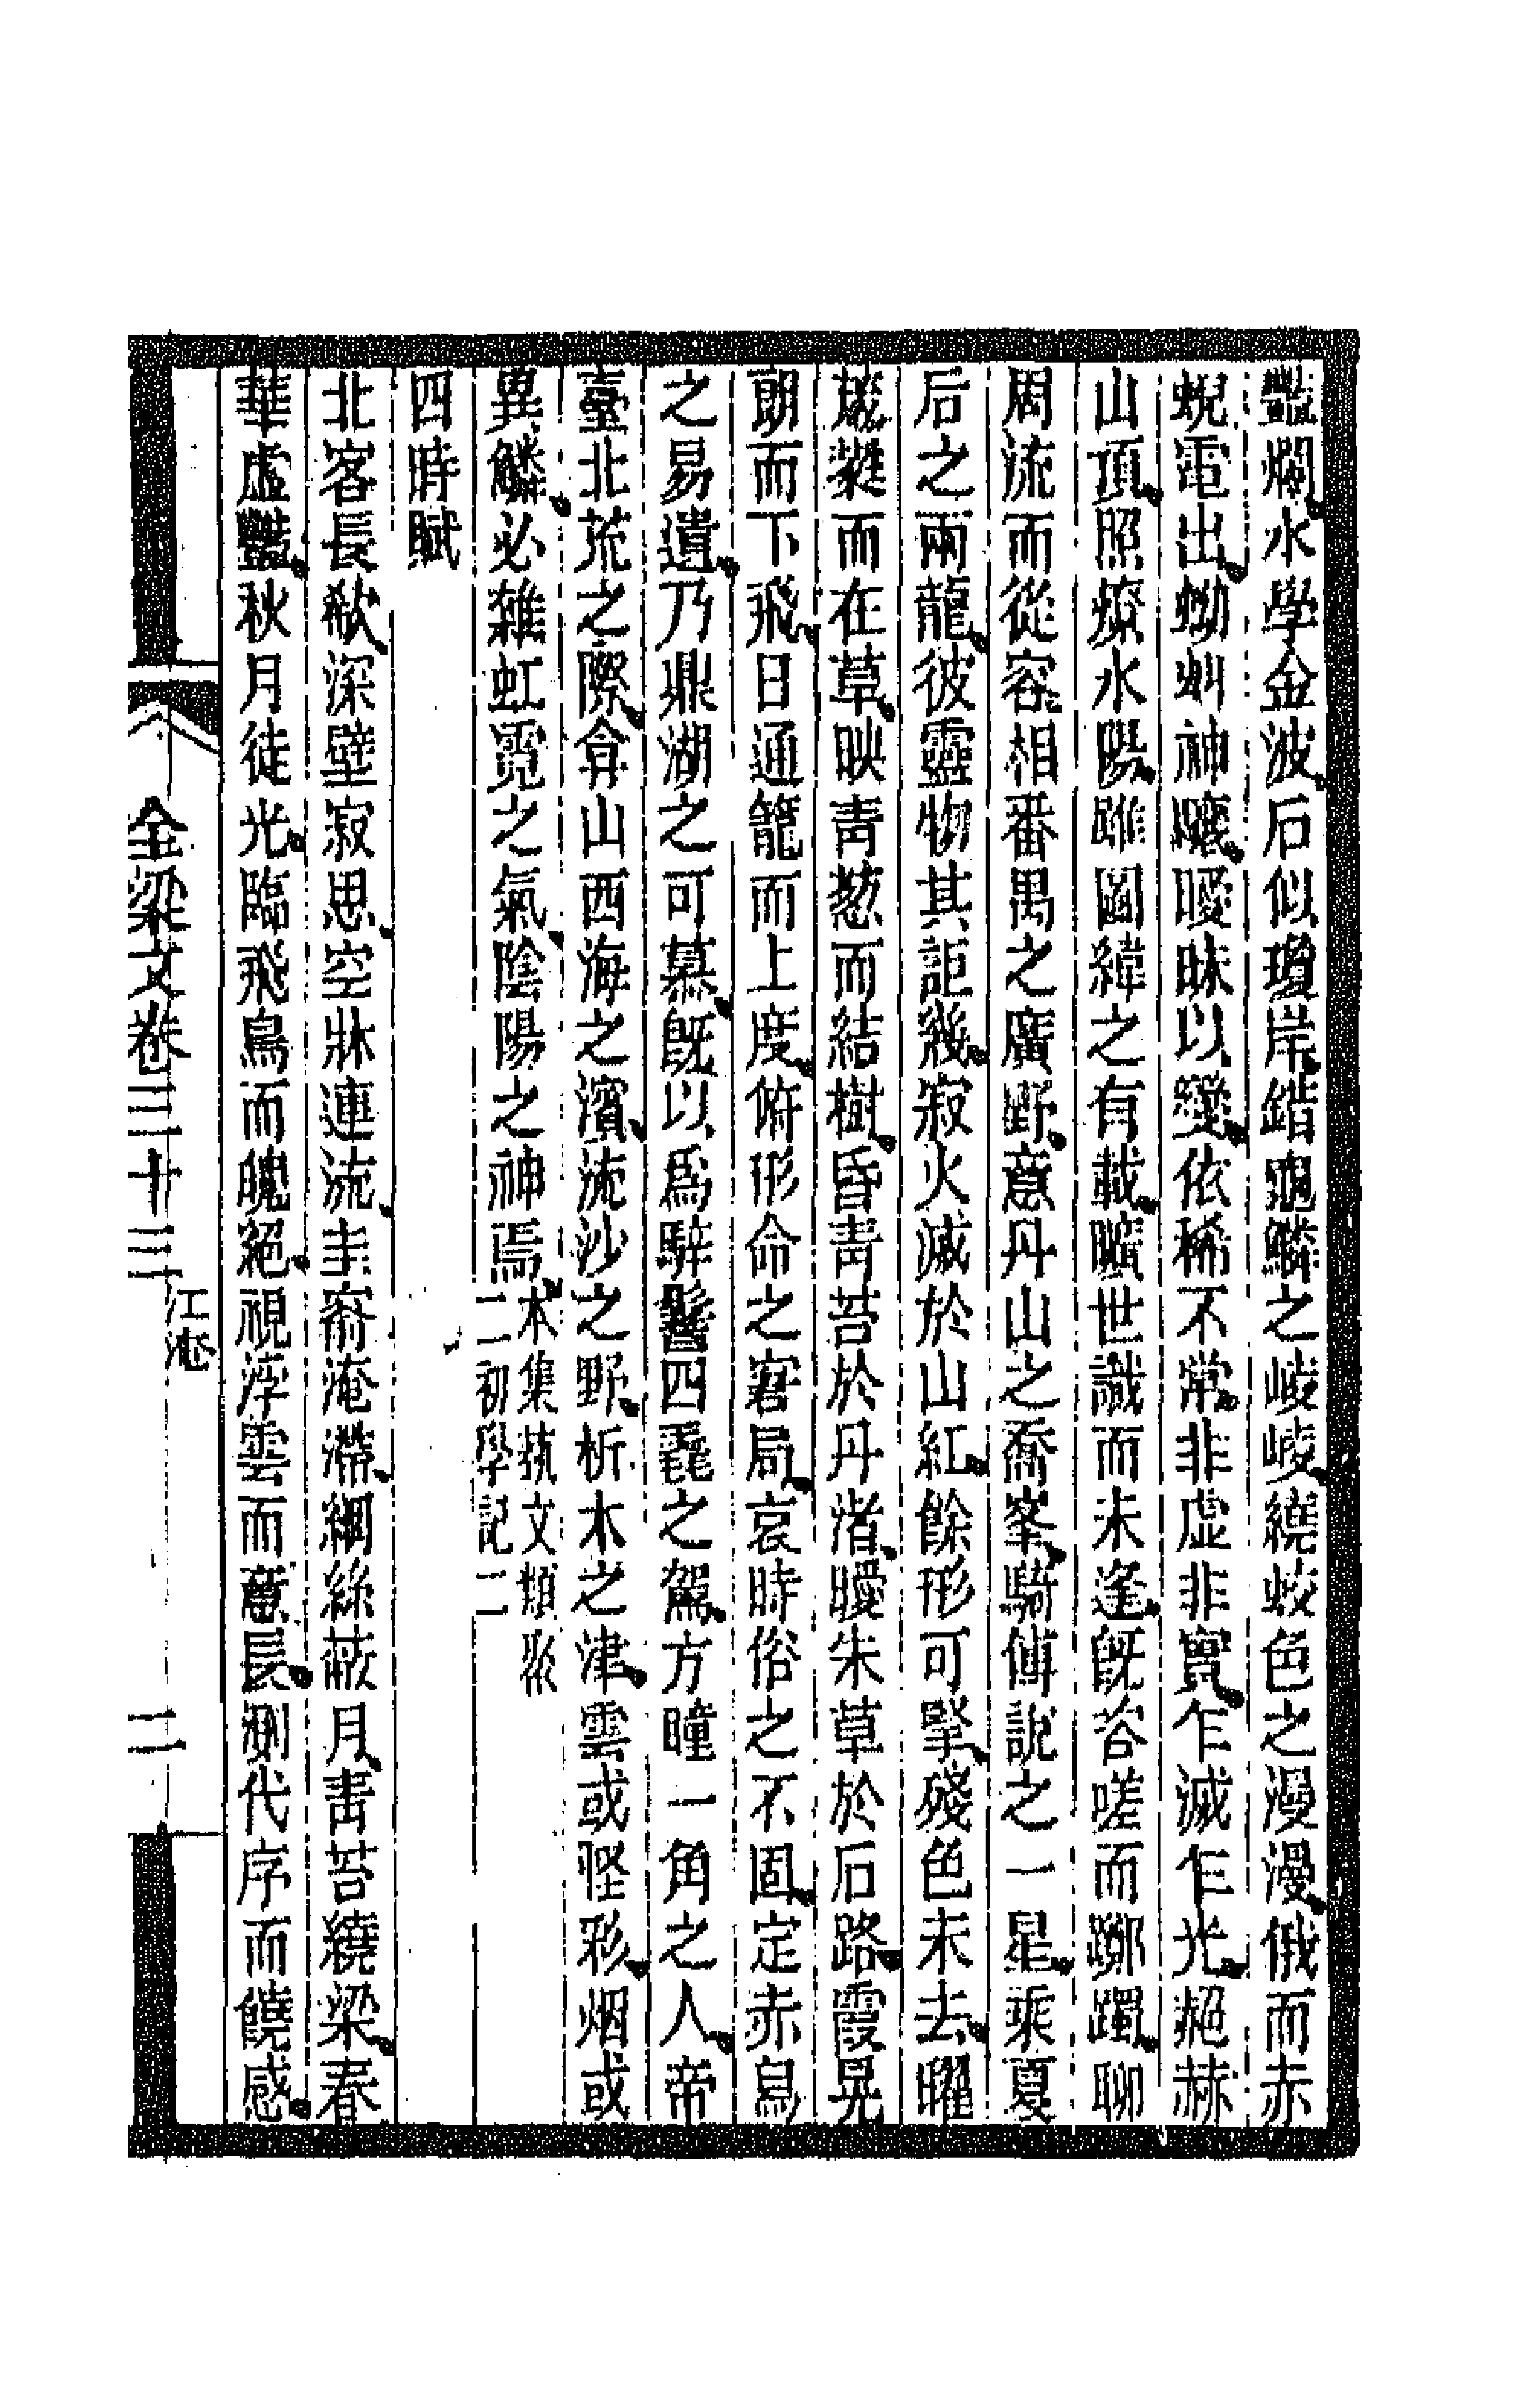 豔爛水學金波石似瓊岸錯龜鱗之崚崚繞蛟色之漫漫俄而赤
蜺電出蚴虯神驤曖昧以變依稀不常非虛非實乍滅乍光赩赫
山頂照燎水陽雖圖緯之有載曠世識而未逢旣咨嗟而躑躅聊
周流而從容相番禺之廣野意丹山之喬峯騎傅說之一星乘夏
后之兩龍彼靈物其詎幾寂火滅於山紅餘形可擥殘色未去曜
葳蕤而在草映青蔥而結樹昏青苔於丹渚曖朱草於石路霞晃
朗而下飛日通籠而上度俯形命之窘局哀時俗之不固定赤舄
之易遺乃鼎湖之可慕旣以爲騂鬐四毳之駕方瞳一角之人帝
臺北荒之際弇山西海之濱流沙之野析木之津雲或怪彩烟或
異鱗必雜虹霓之氣陰陽之神焉本集藝文類聚二初學記二
四時賦
北客長欷深壁寂思空牀連流圭窬淹滯網絲蔽月青苔繞梁春
華虛豔秋月徒光臨飛鳥而魄絕視浮雲而意長測代序而饒感
全梁文卷三十三 江淹 二